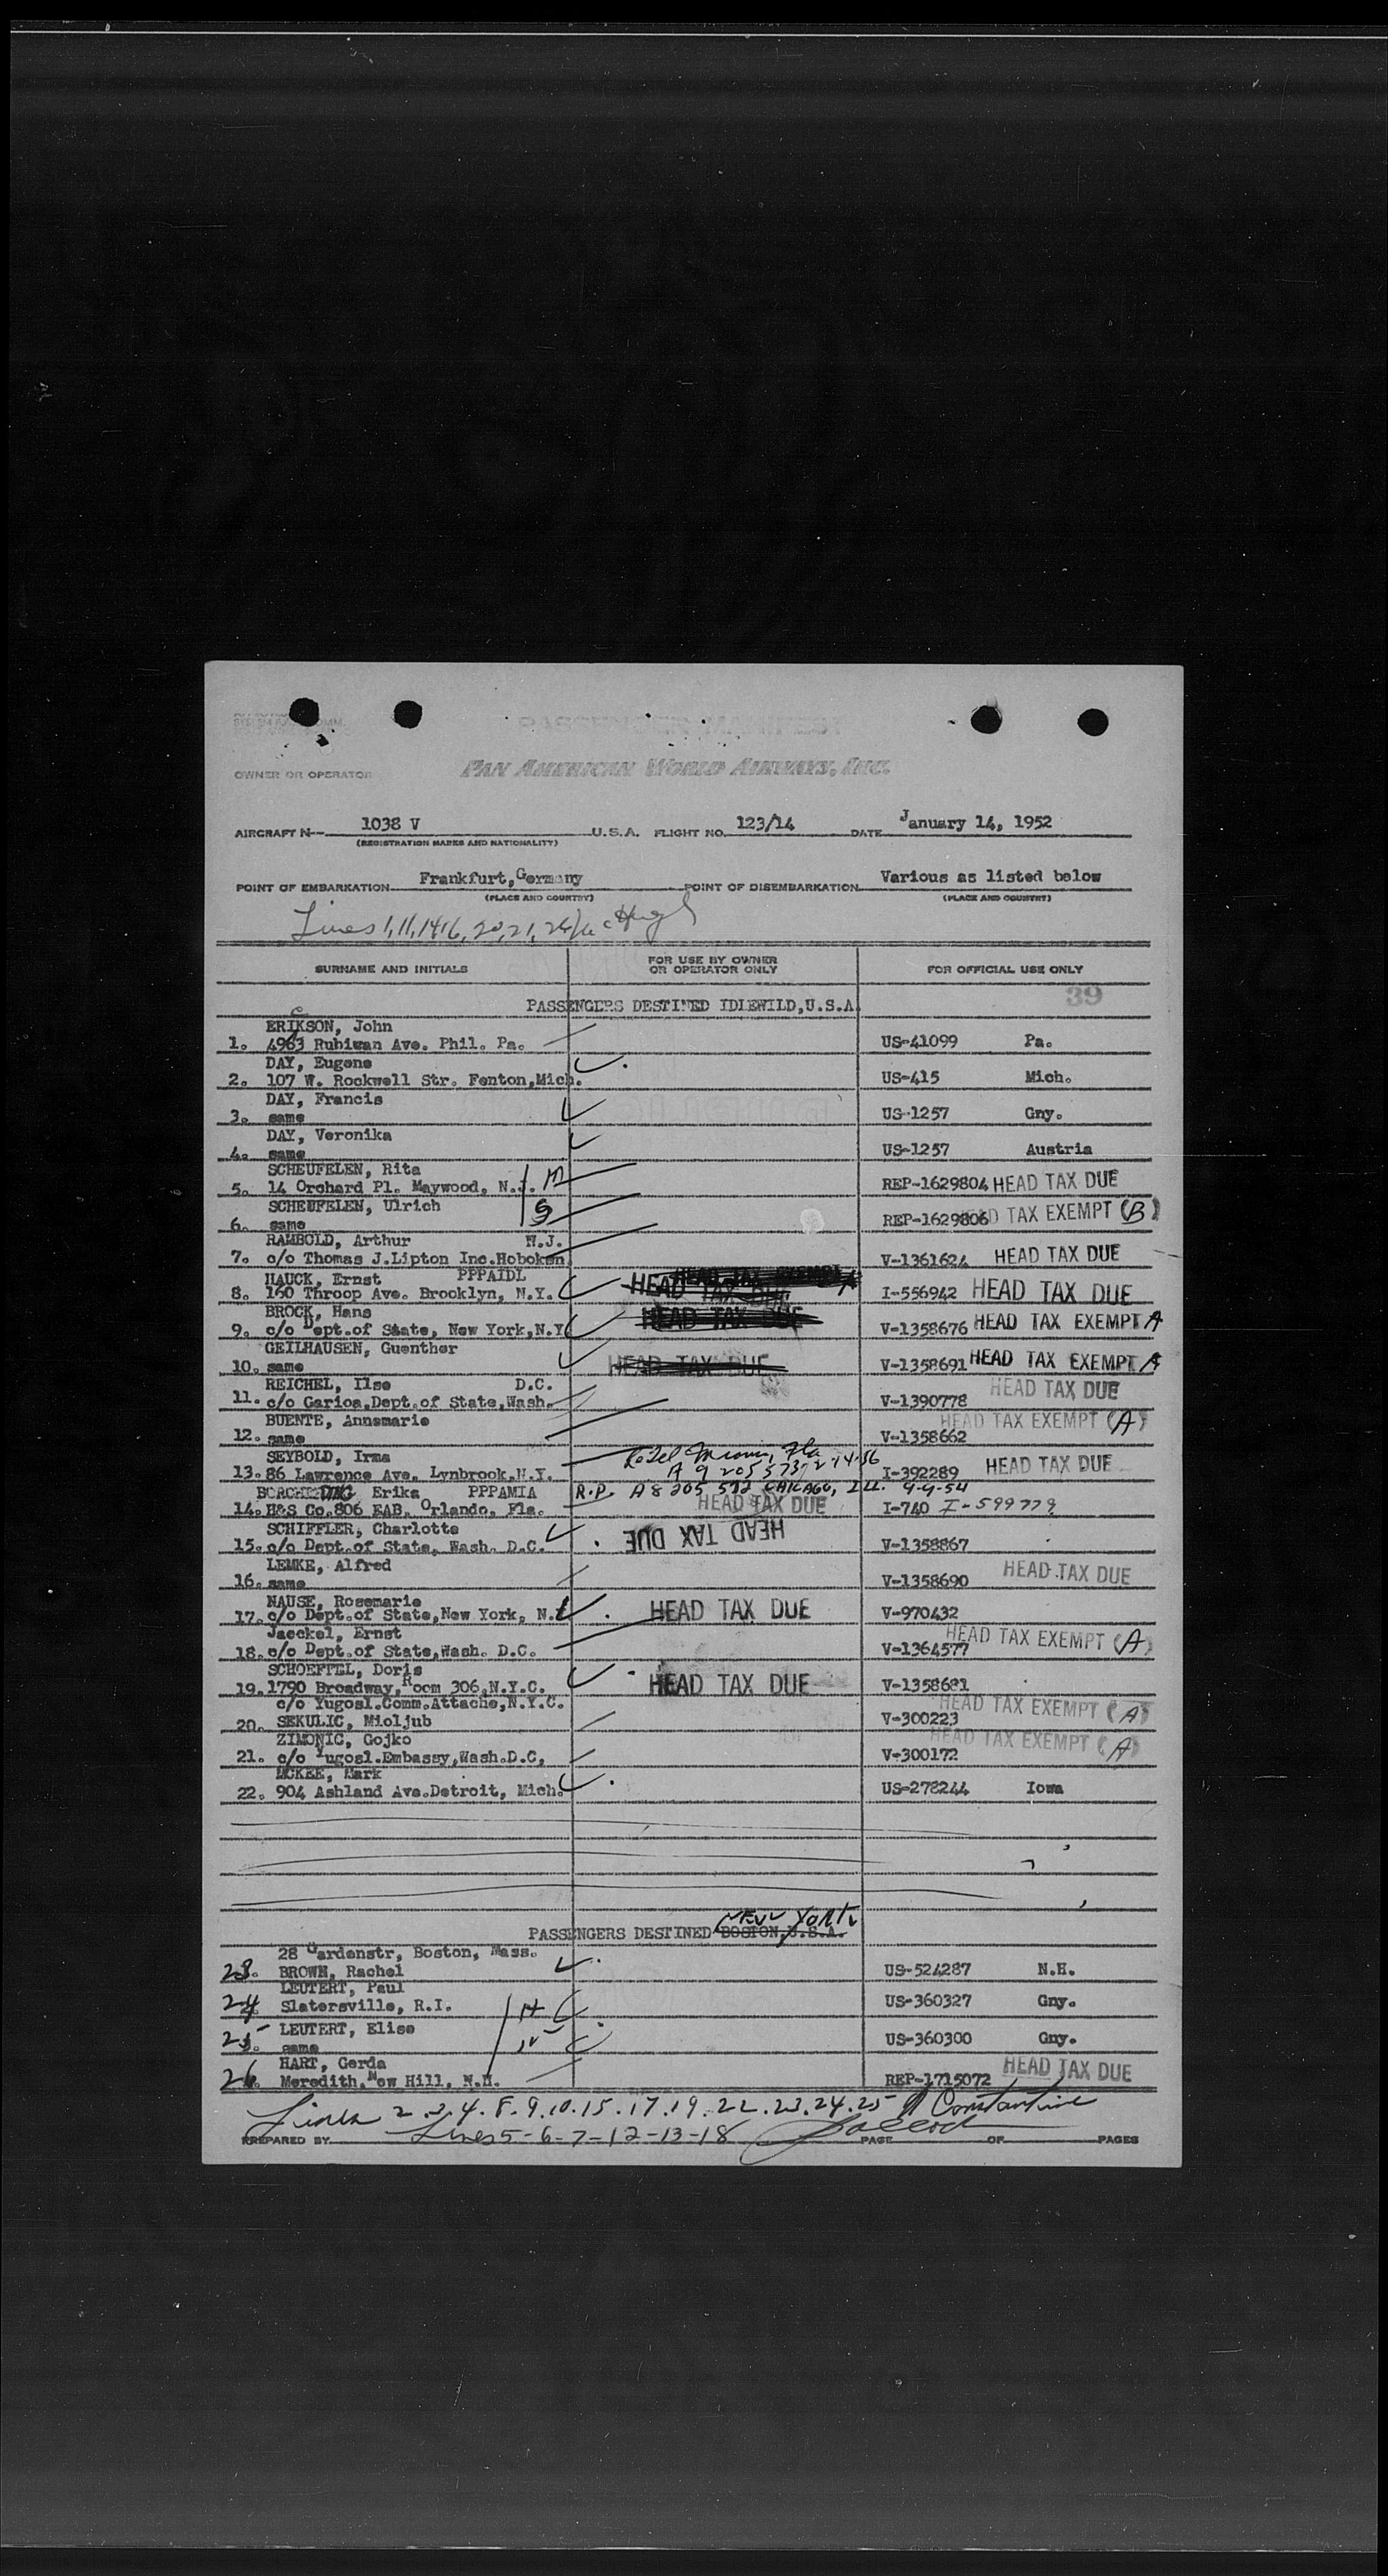 PASSENGER MANIFEST
OWNER OR OPERATOR PAN AMERICAN WORLD AIRWAYS, INC.
AIRCRAFT N— 1038 V U.S.A. FLIGHT NO. 123/14 DATE January 14, 1952
(REGISTRATION MARKS AND NATIONALITY)
POINT OF EMBARKATION Frankfurt, Germany POINT OF DISEMBARKATION Various as listed below
(PLACE AND COUNTRY) (PLACE AND COUNTRY)
Lines 1, 11, 14, 16, 20, 21, 26
SURNAME AND INITIALS FOR USE BY OWNER OR OPERATOR ONLY FOR OFFICIAL USE ONLY
39
PASSENGERS DESTINED IDLEWILD, U.S.A.
ERIKSON, John
1. 4963 Rubiwan Ave. Phil. Pa. US-41099 Pa.
DAY, Eugene
2. 107 W. Rockwell Str. Fenton, Mich. US-415 Mich.
DAY, Francis
3. same US-1257 Gny.
DAY, Veronika
4. same US-1257 Austria
SCHEUFELEN, Rita
5. 14 Orchard Pl. Maywood, N.J. M REP-1629804 HEAD TAX DUE
SCHEUFELEN, Ulrich
6. same S REP-1629806 HEAD TAX EXEMPT (B)
RAMBOLD, Arthur N.J.
7. c/o Thomas J.Lipton Inc.Hoboken V-1361624 HEAD TAX DUE
HAUCK, Ernst PPPAIDL HEAD TAX EXEMPT A
8. 160 Throop Ave. Brooklyn, N.Y. HEAD TAX DUE I-556942 HEAD TAX DUE
BROCK, Hans HEAD TAX DUE
9. c/o Dept.of State, New York,N.Y. V-1358676 HEAD TAX EXEMPT A
GEILHAUSEN, Guenther
10. same HEAD TAX DUE V-1358691 HEAD TAX EXEMPT A
REICHEL, Ilse D.C.
11. c/o Garioa,Dept.of State,Wash. V-1390778 HEAD TAX DUE
BUENTE, Annemarie
12. same V-1358662 HEAD TAX EXEMPT (A)
SEYBOLD, Irma Miami, Fla
13. 86 Lawrence Ave. Lynbrook,N.Y. A 9 205 573 2-14-56 I-392289 HEAD TAX DUE
BORCHERDING Erika PPPAMIA R.P. A 8 205 572 CHICAGO, ILL. 9-9-54
14. H&S Co.806 EAB, Orlando, Fla. HEAD TAX DUE I-740 I-599779
SCHIFFLER, Charlotte
15. c/o Dept.of State, Wash. D.C. HEAD TAX DUE V-1358867
LEMKE, Alfred
16. same V-1358690 HEAD TAX DUE
NAUSE, Rosemarie
17. c/o Dept.of State,New York, N.Y. HEAD TAX DUE V-970432
Jaeckel, Ernst
18. c/o Dept.of State,Wash. D.C. V-1364577 HEAD TAX EXEMPT (A)
SCHOEFFEL, Doris
19. 1790 Broadway,Room 306,N.Y.C. HEAD TAX DUE V-1358681
c/o Yugosl.Comm.Attache,N.Y.C.
20. SEKULIC, Mioljub V-300223 HEAD TAX EXEMPT (A)
ZIMONIC, Gojko
21. c/o Yugosl.Embassy,Wash.D.C, V-300172 HEAD TAX EXEMPT (A)
MCKEE, Mark
22. 904 Ashland Ave.Detroit, Mich. US-278244 Iowa
NEW YORK
PASSENGERS DESTINED BOSTON, U.S.A.
28 Gardenstr, Boston, Mass.
23. BROWN, Rachel US-524287 N.H.
LEUTERT, Paul
24 Slatersville, R.I. H US-360327 Gny.
LEUTERT, Elise
25 same US-360300 Gny.
HART, Gerda
26. Meredith, New Hill, N.H. REP-1715072 HEAD TAX DUE
Lines 2.3.4.8.9.10.15.17.19.22.23.24.25 Constantine
PREPARED BY Lines 5-6-7-12-13-18 PAGE OF PAGES